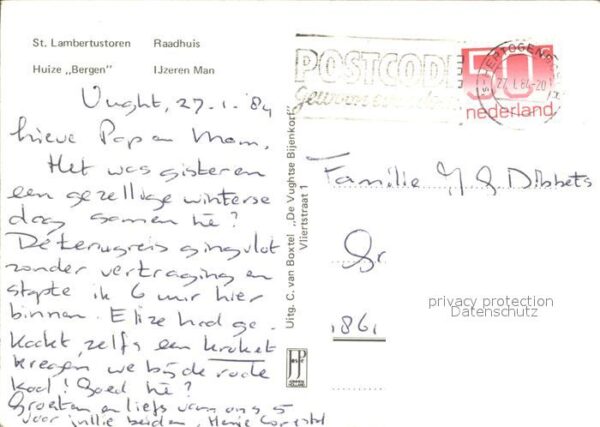 St. Lambertustoren Raadhuis
Huize „Bergen" IJzeren Man
Vught, 27.1.'84
Lieve Pap en Mam,
Het was gisteren
een gezellige winterse
dag samen hè?
De terugreis ging vlot
zonder vertraging en
stapte ik 6 uur hier
binnen. Elize had ge-
kookt, zelfs een kroket
kregen we bij de rode
kool! Goed hè?
Groeten en liefs van ons 5
voor jullie beiden,
Uitg. C. van Boxtel „De Vughtse Bijenkorf"
Vliertstraat 1
POSTCODE
gewoon even doen
's-HERTOGENBOSCH
27.1.84-20
50
nederland
Familie Dibbets
Gr.
1861
privacy protection
Datenschutz